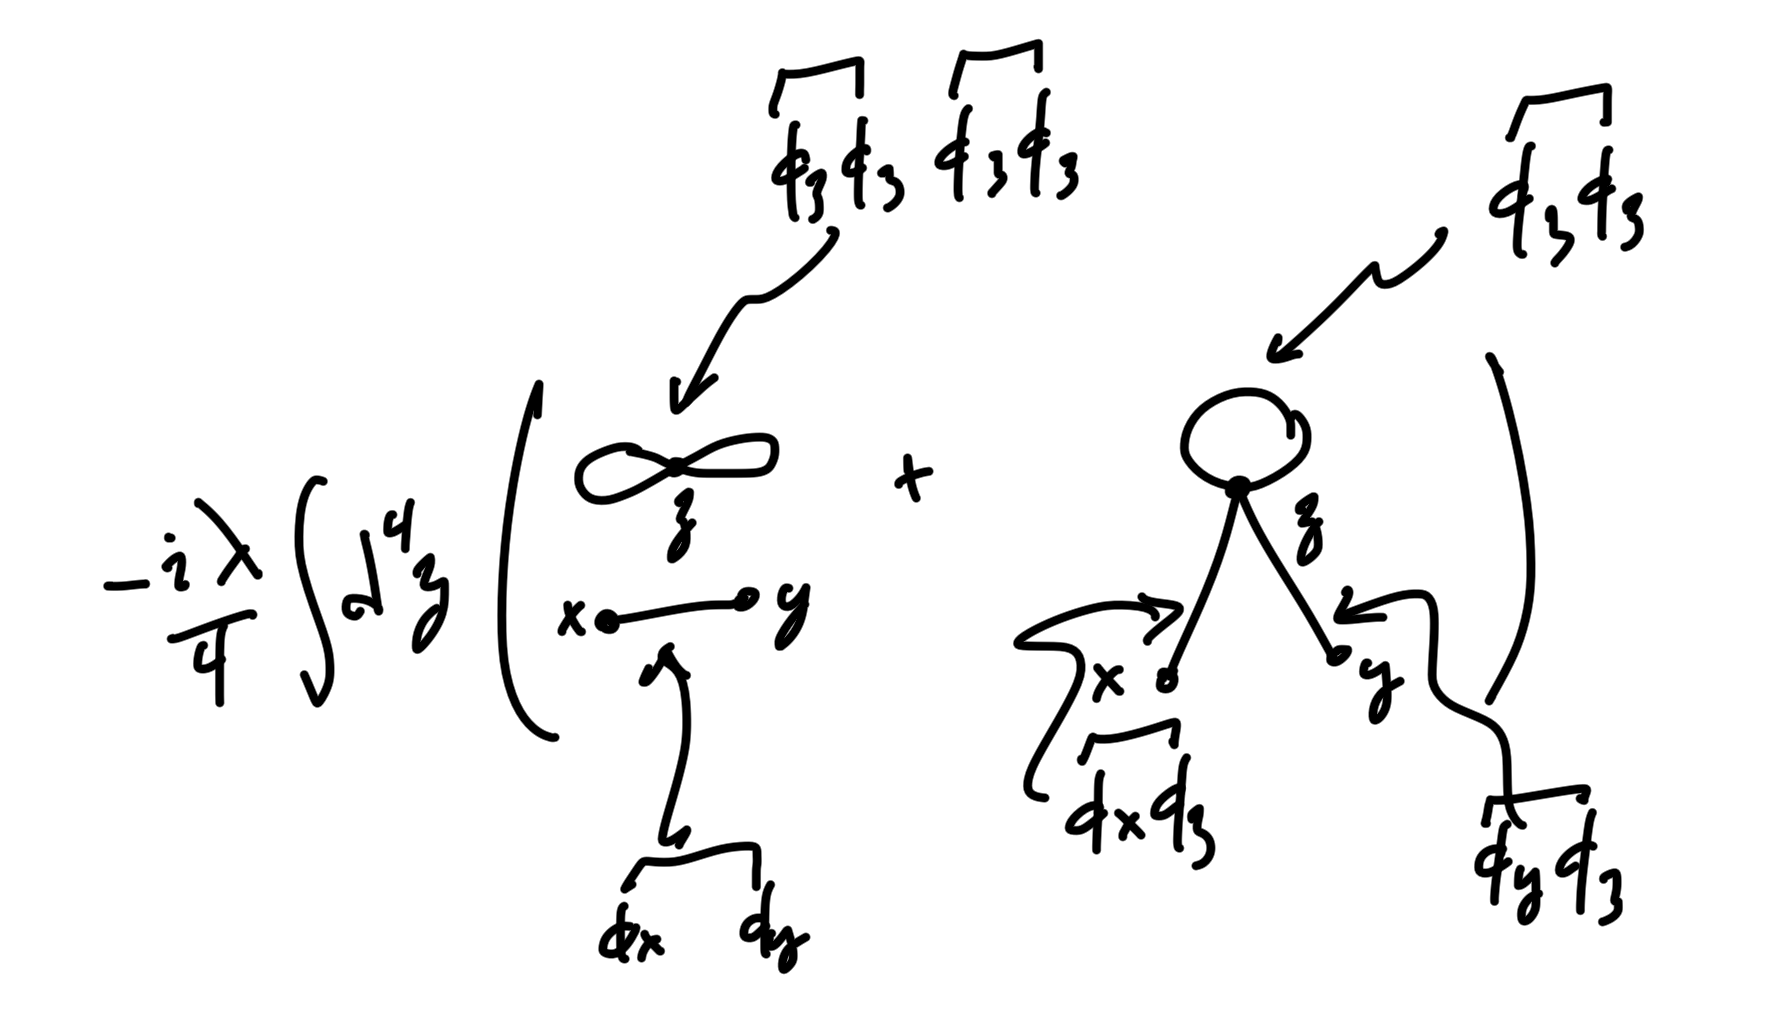 ϕzϕz ϕzϕz
ϕzϕz
-iλ/4 ∫ d⁴z ( z + z )
x y
x y
ϕxϕz
ϕyϕz
ϕx ϕy